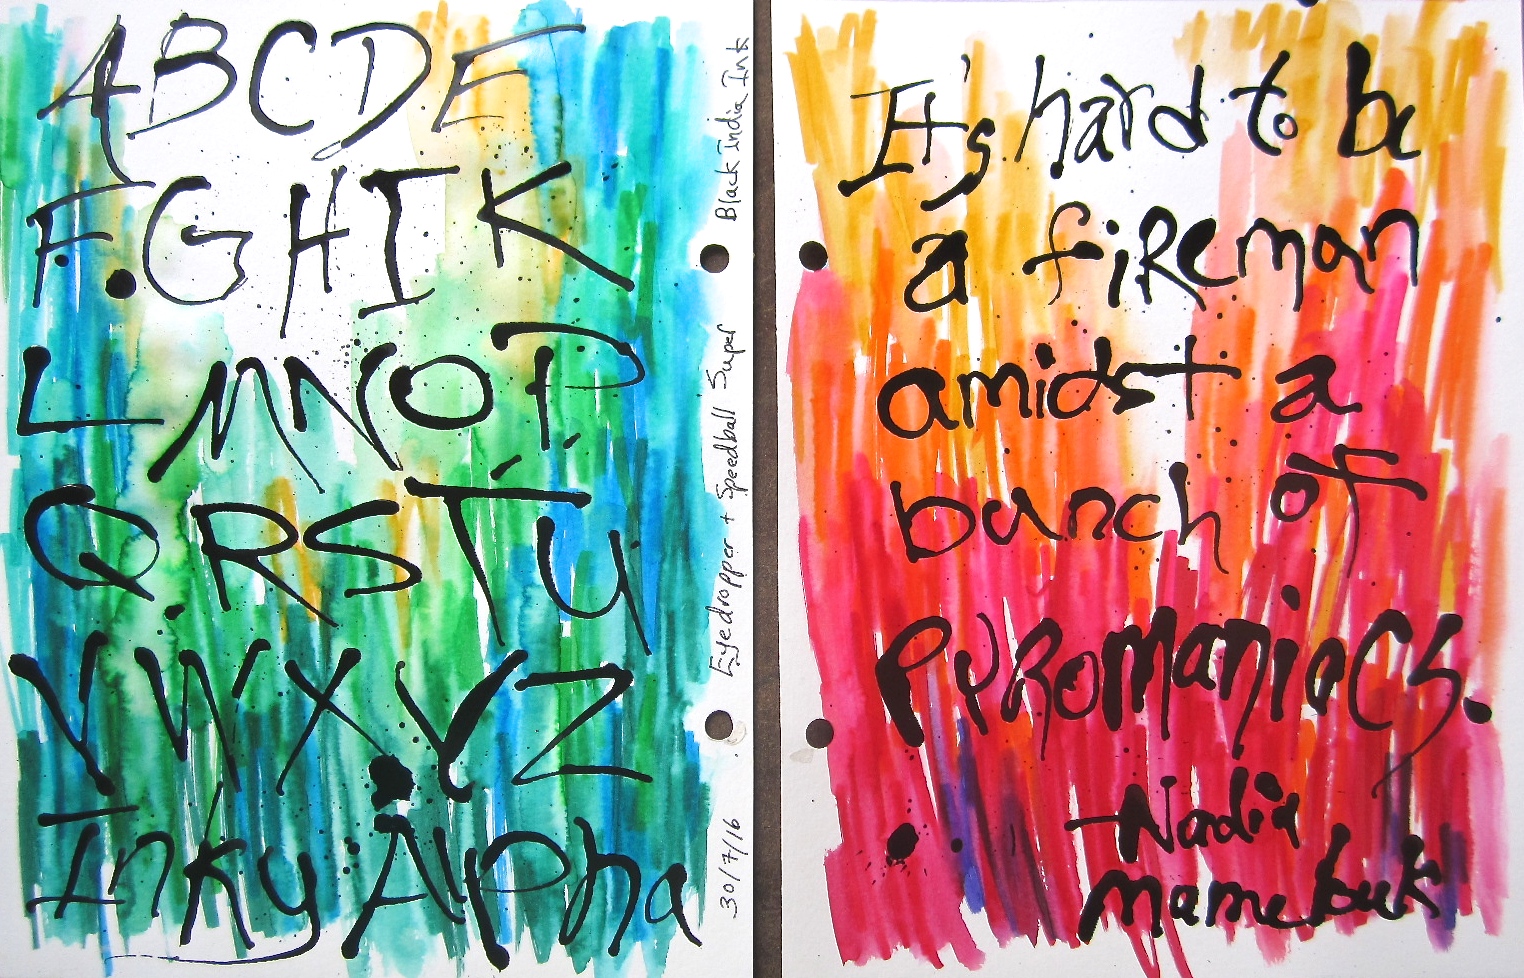 ABCDE
FGHIK
LMNOP
QRSTU
VWXYZ
Inky Alpha
30/7/16 Eyedropper + Speedball Super Black India Ink
It's hard to be
a fireman
amidst a
bunch of
pyromaniacs.
- Nadia